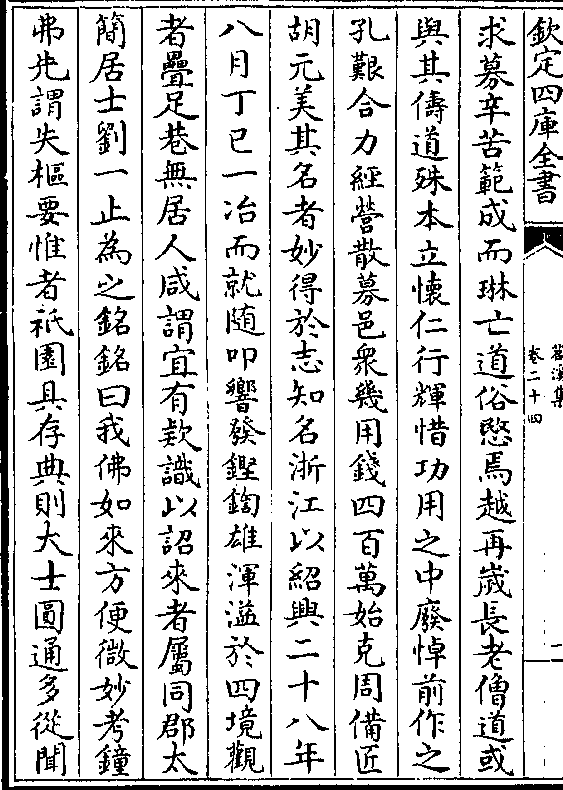 欽定四庫全書
苕溪集
卷二十四
二
求募辛苦範成而琳亡道俗愍焉越再嵗長老僧道或
與其儔道殊本立懷仁行輝惜功用之中廢悼前作之
孔艱合力經營散募邑衆幾用錢四百萬始克周備匠
胡元美其名者妙得於志知名浙江以紹興二十八年
八月丁巳一冶而就随叩響發鏗鍧雄渾溢於四境觀
者疊足巷無居人咸謂宜有欵識以詔來者屬同郡太
簡居士劉一止為之銘銘曰我佛如來方便微妙考鐘
弗先謂失樞要惟耆祇園具存典則大士圓通多從聞